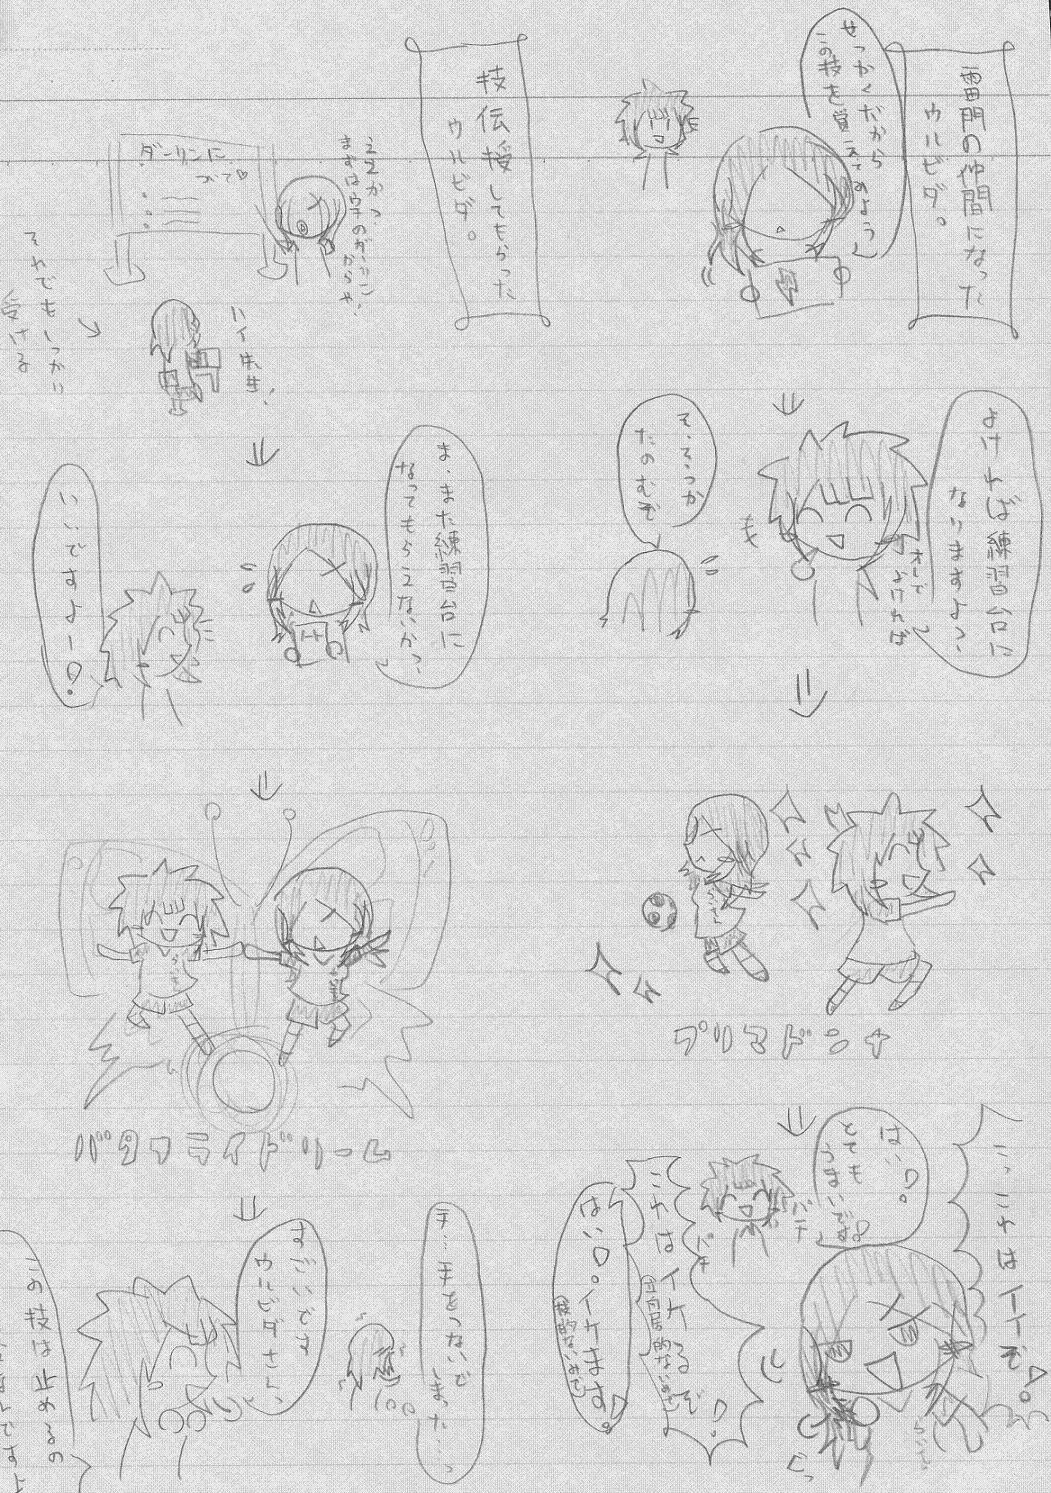 雷門の仲間になった
ウルビダ。
せっかくだから
この技を覚えてみよう
技伝授してもらった
ウルビダ。
ええかっ
まずはウチのダーリン
からや!
ダーリンに
ついて♡
ハイ先生!
それでもしっかり
受ける
よければ練習台に
なりますよっ
オレで
よければ
そ、そっか
たのむぞ
ま、また練習台に
なってもらえないかっ
いいですよー♡。
プリマドンナ
バタフライドリーム
こっ これは イイぞ!
はい♡。
とても
うまいです♡
パチ
パチ
これはイケるぞ♡!
はい♡。イケます♡。
ぐっ
手…手をつないで
しまった…っ
すごいです
ウルビダさんっ
この技は止めるの